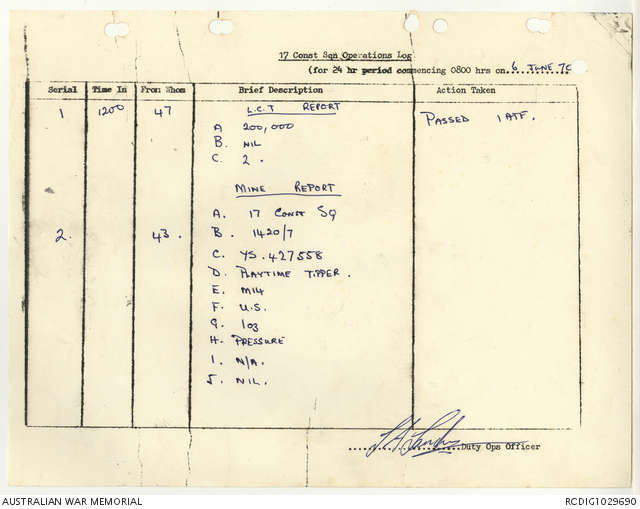 17 Const Sqn Operations Log
(for 24 hr period commencing 0800 hrs on 6 JUNE 70
Serial Time In From Whom Brief Description Action Taken
1 1200 47 L.C.T REPORT
A 200,000 PASSED 1 ATF.
B. NIL
C. 2.
MINE REPORT
A. 17 CONST SQ
2. 43. B. 1420/7
C. YS.427558
D. PLAYTIME TIPPER.
E. M14
F. U.S.
G. 1oz
H. PRESSURE
I. N/A.
J. NIL.
Duty Ops Officer
AUSTRALIAN WAR MEMORIAL RCDIG1029690